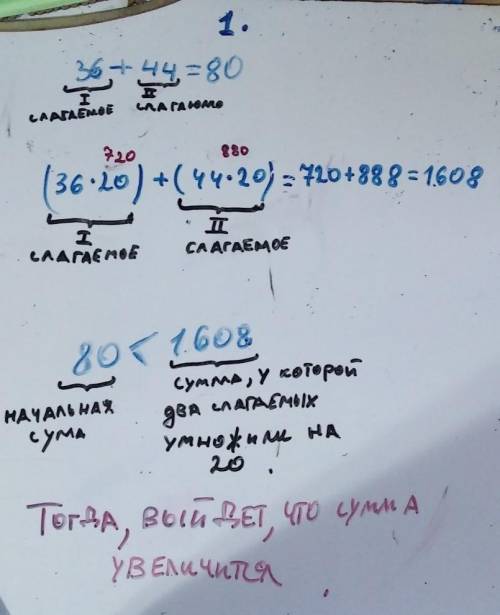 1.
36 + 44 = 80
I II
слагаемое слагаюмо
720 880
(36·20) + (44·20) = 720+888 = 1608
I II
слагаемое слагаемое
80 < 1608
начальная сума
сумма, у которой два слагаемых умножили на 20.
Тогда, выйдет, что сумма
увеличится.